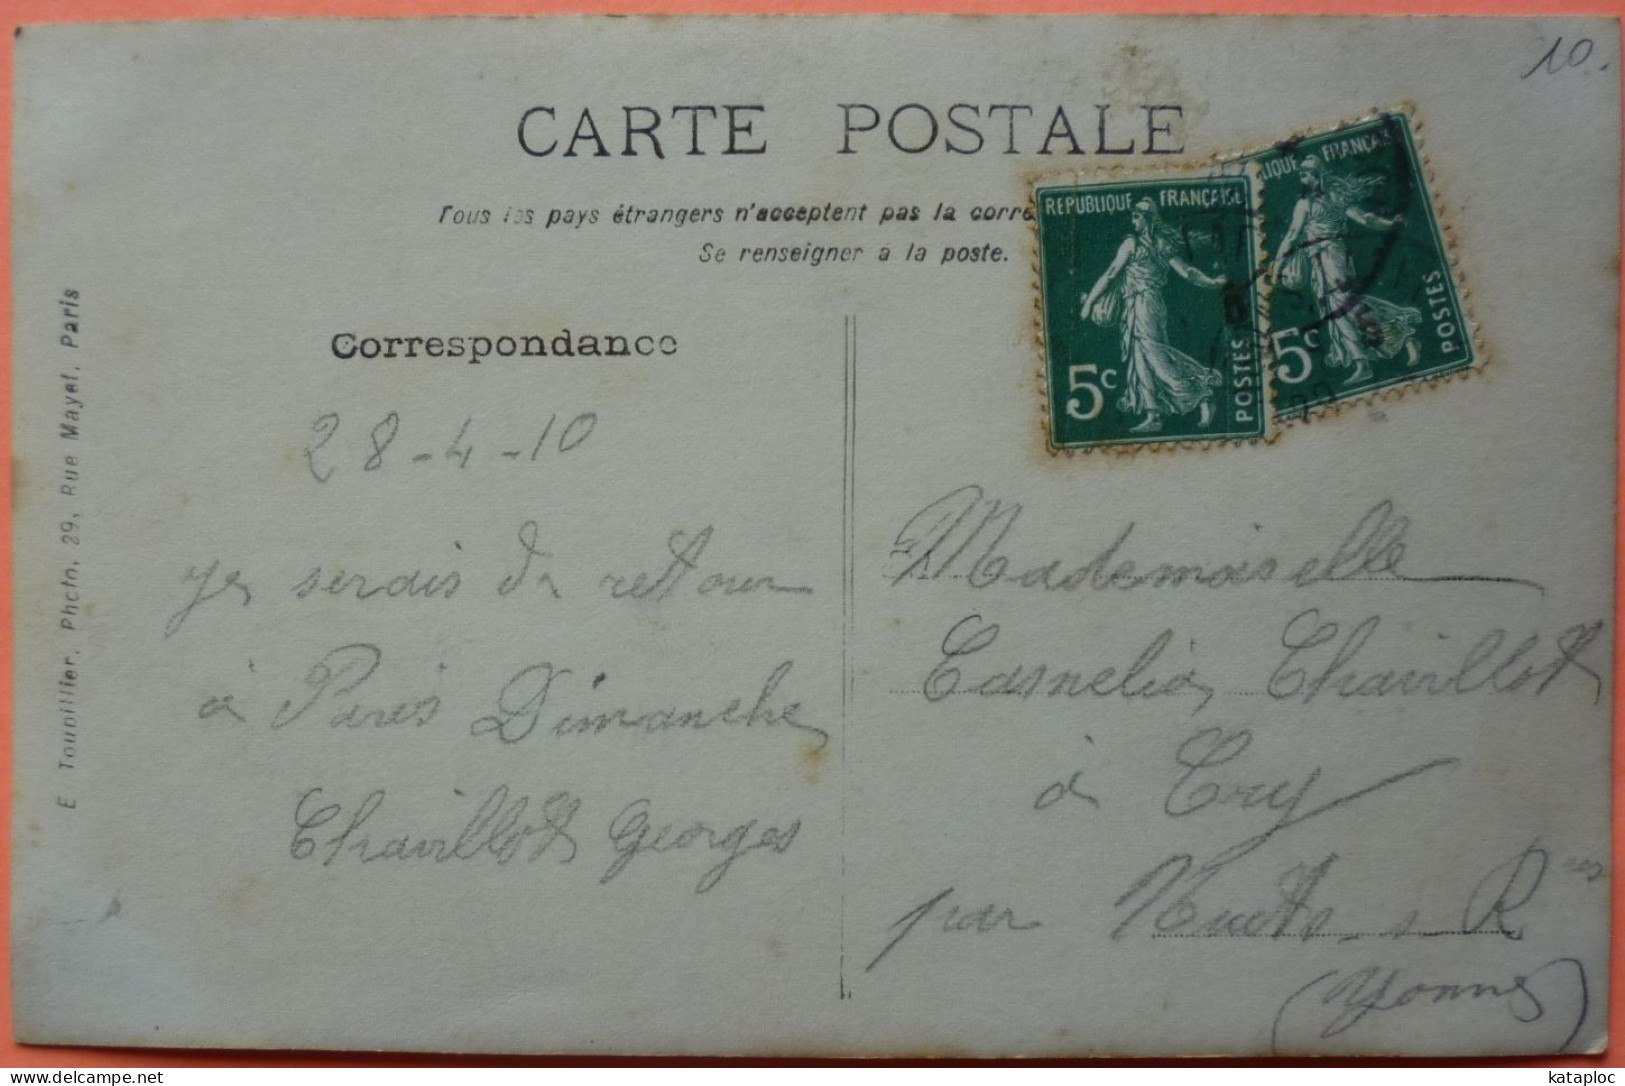 10.
CARTE POSTALE
Tous les pays étrangers n'acceptent pas la corre
Se renseigner à la poste.
REPUBLIQUE FRANÇAISE
5c
POSTES
BLIQUE FRANÇAIS
5c
POSTES
E Tourillier. Photo, 29, Rue Mayet. Paris
Correspondance
28-4-10
ye serais de retour
à Paris Dimanche
Chavillot Georges
Mademoiselle
Camelia Chavillot
à Cry
par Nuits-s-R
(Yonne)
kataploc